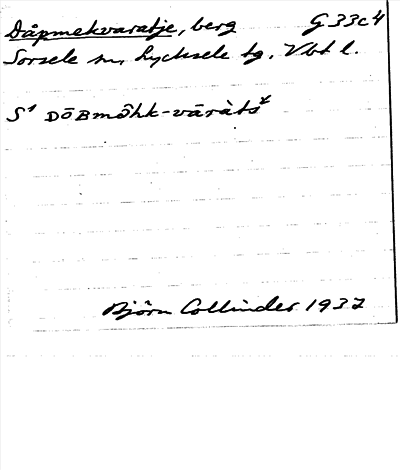 Dåpmekvaratje, berg G 33c4
Sorsele sn, Lycksele tg. Vbt l.
S¹ DōBmōhk-vāràts
Björn Collinder 1937